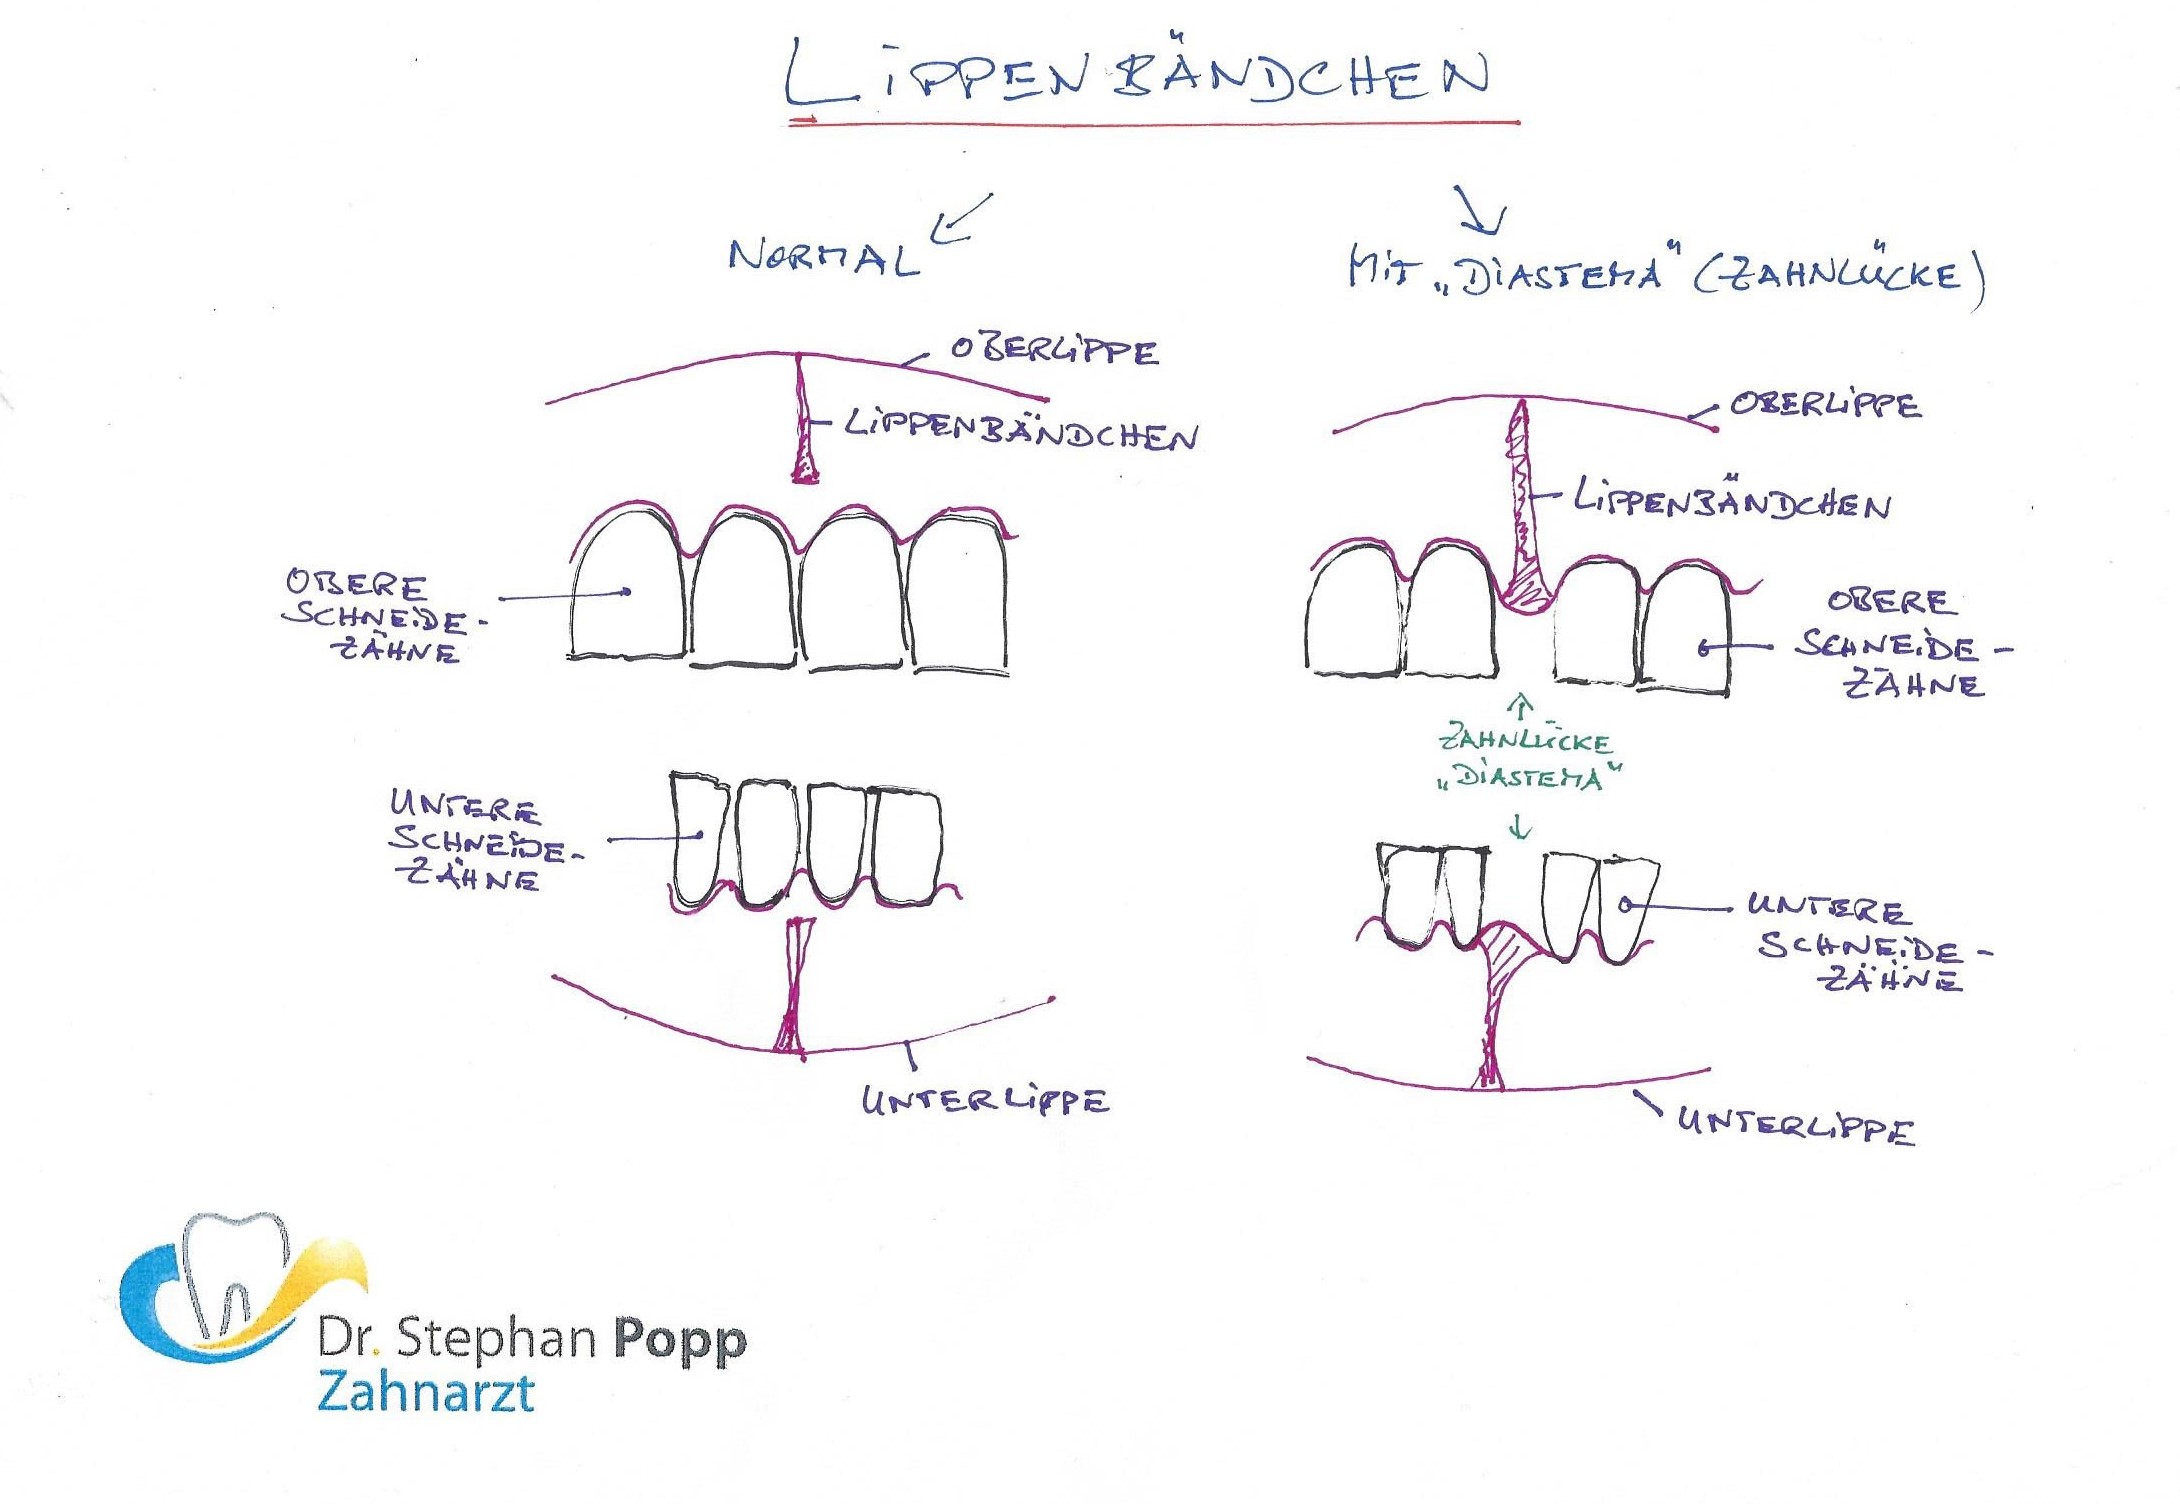 LIPPENBÄNDCHEN
NORMAL
OBERLIPPE
LIPPENBÄNDCHEN
OBERE
SCHNEIDE-
ZÄHNE
UNTERE
SCHNEIDE-
ZÄHNE
UNTERLIPPE
MIT „DIASTEMA“ (ZAHNLÜCKE)
OBERLIPPE
LIPPENBÄNDCHEN
OBERE
SCHNEIDE-
ZÄHNE
ZAHNLÜCKE
„DIASTEMA“
UNTERE
SCHNEIDE-
ZÄHNE
UNTERLIPPE
Dr. Stephan Popp
Zahnarzt